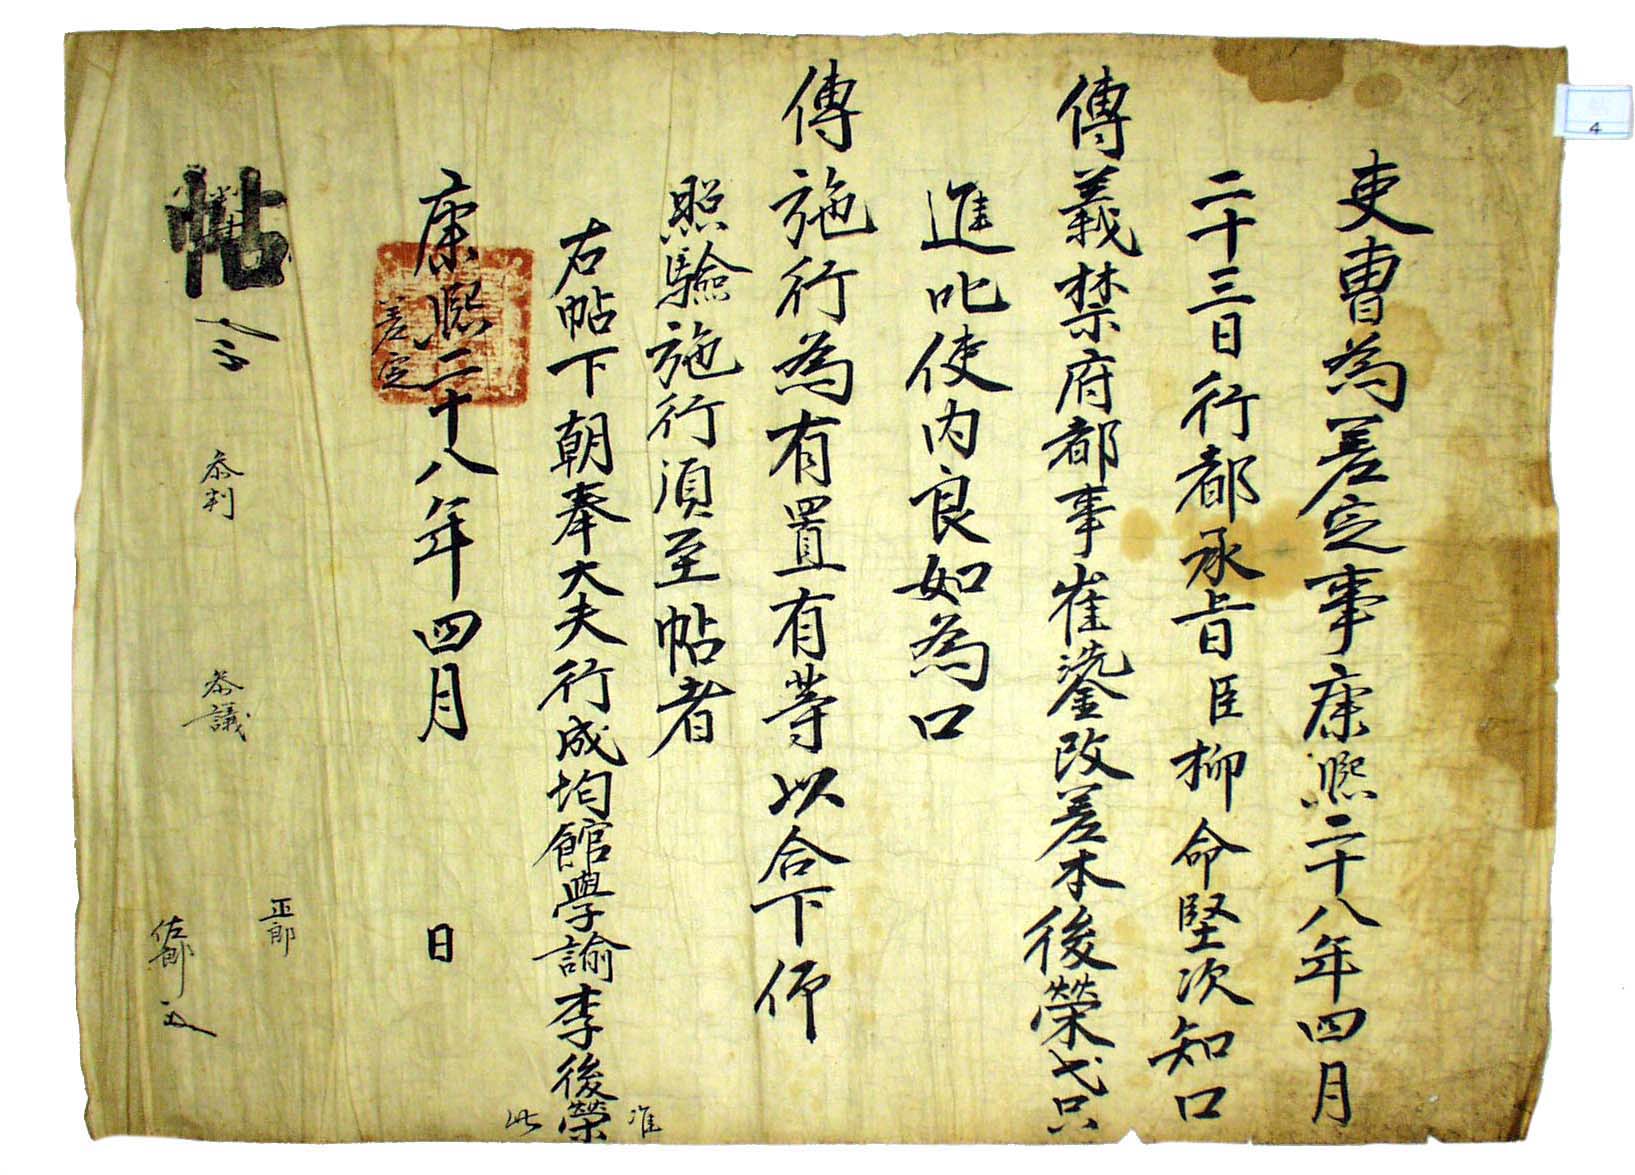 吏曹為差定事康熙二十八年四月
二十三日行都承旨臣柳命堅次知口
傳義禁府都事崔鋈改差本後榮弋只
進叱使內良如為口
傳施行為有置有等以合下仰
照驗施行湏至帖者
右帖下朝奉大夫行成均館學諭李後榮
准
此
康熙二十八年四月 日
差定
帖
叅判
叅議
正郎
佐郎
4